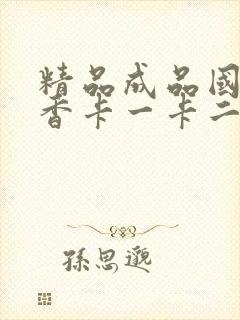 精品成品国
香卡一卡二
孫思邈